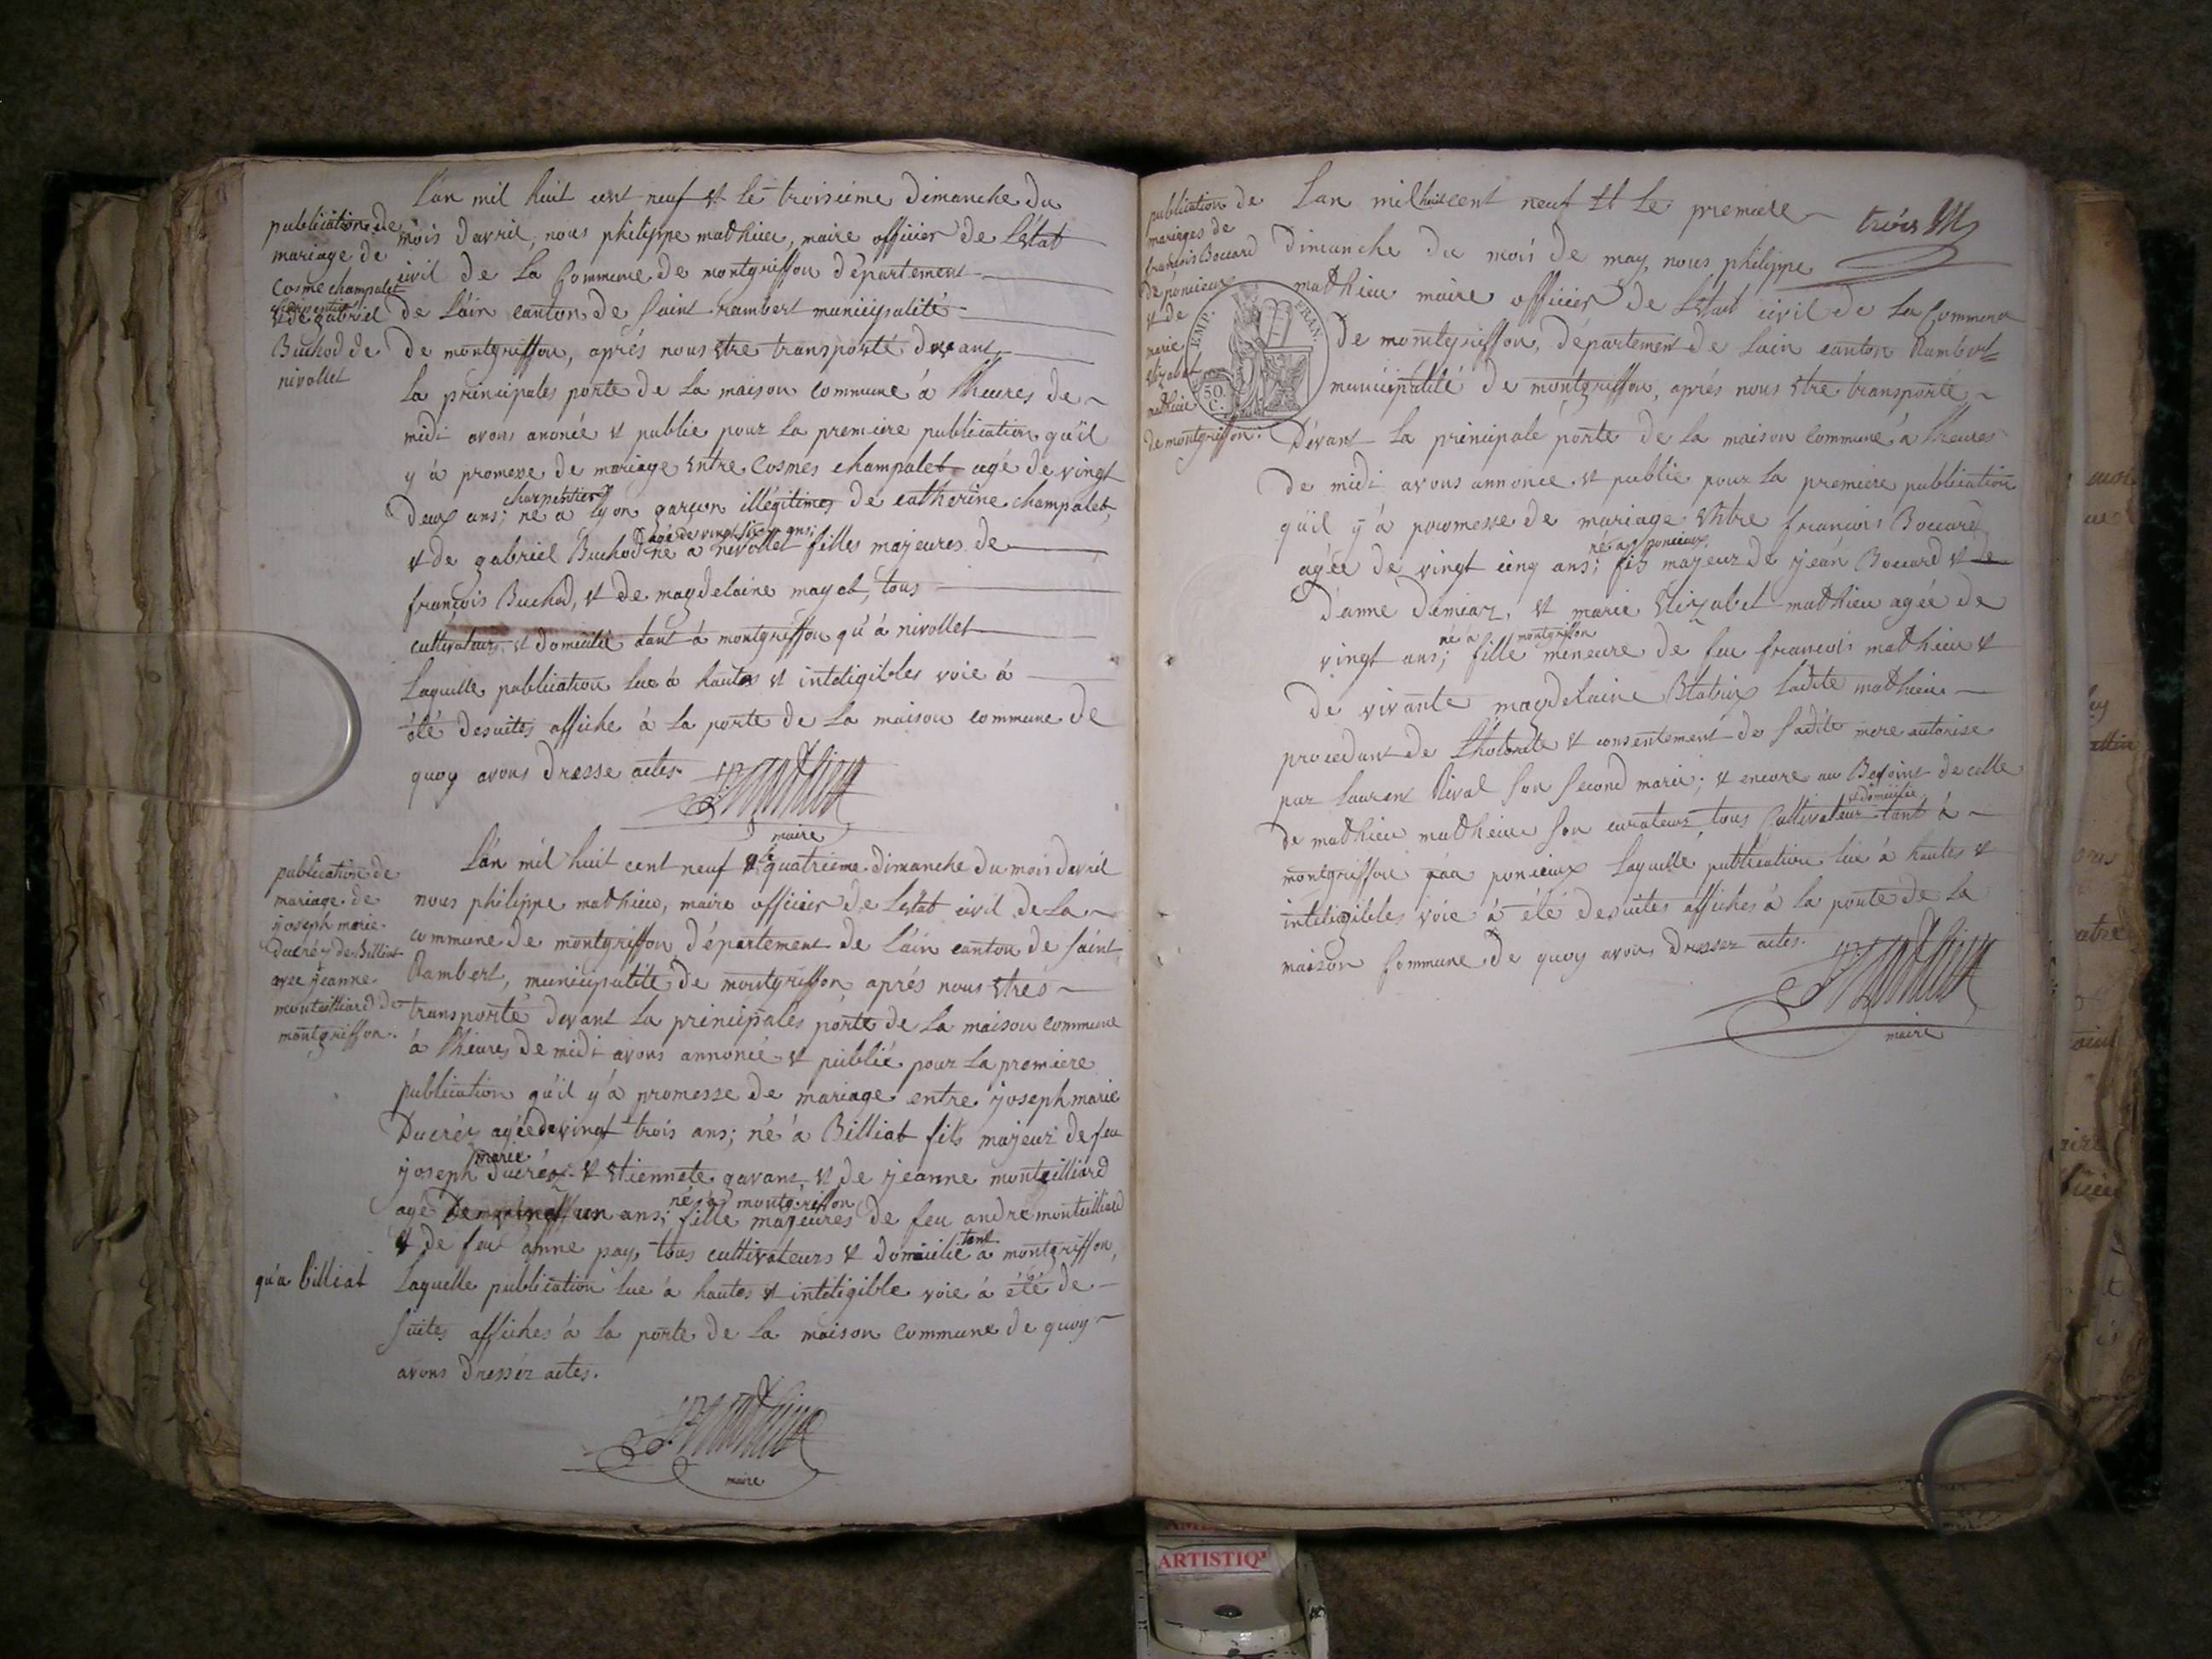 publication de
mariage de
Cosme champalet
charpentier
& de gabriel
Buchod de
nivollet
L'an mil huit cent neuf & le troisieme dimanche du
mois davril, nous philippe mathieu, maire officier de Létat
civil de La Commune de montgriffon département
de L'ain canton de Saint rambert municipalité
de montgriffon, aprés nous etre transporté devant
La principales porte de La maison commune á Lheures de
midi avons anoncé & publie pour La premiere publication qu'il
y á promesse de mariage entre Cosmes champalet agé de vingt
charpentier
deux ans; né a lyon garçon illégitimes de catherine champalet,
agé de vingt six ans;
& de gabriel Buchod né a nivollet filles majeures de
françois Buchod, & de magdelaine mayat, tous
cultivateurs & domicilié tant á montgriffon qu'á nivollet
Laquelle publication lue á hautes & inteligibles voie á
été desuites affiche á La porte de La maison commune de
quoy avons dresse actes.
P. Mathieu
maire
publication de
mariage de
joseph marie
ducréz de Billiat
avec jeanne
monteilliard de
montgriffon.
L'an mil huit cent neuf & le quatrieme dimanche du mois davril
nous philippe mathieu, maire officier de Létat civil de La
commune de montgriffon département de L'ain canton de saint
Rambert, municipalité de montgriffon aprés nous etres
transporté devant La principales porte de La maison commune
á Lheures de midi avons annoncé & publié pour La premiere
publication qu'il y'á promesse de mariage entre joseph marie
Ducréz agée de vingt trois ans; né á Billiat fils majeur de feu
marie
joseph ducréz & etiennete gavant & de jeanne monteilliard
né á montgriffon
agé de vingt un ans; fille majeures de feu andre monteilliard
tant
& de feu anne pay, tous cultivateurs & domicilié a montgriffon,
qu'a billiat
Laquelle publication lue á hautes & inteligible voie á été de
suites affiches á La porte de La maison commune de quoy
avons dresséz actes.
P. Mathieu
maire
trois
publication de
mariages de
francois Boccard
de poncieux
& de
marie
elizabet
mathieu
de montgriffon.
EMP. FRAN.
50 C.
L'an mil huit cent neuf & Le premiere
dimanche du mois de may, nous philippe
mathieu maire officier de Létat civil de La Commune
de montgriffon, département de Lain canton Rambert
municipalité de montgriffon, aprés nous etre transporté
dévant La principale porte de La maison commune á Lheures
de midi avons annonce & publie pour La premiere publication
qu'il y'á promesse de mariage entre francois Boccard
né a poncieux
agée de vingt cinq ans; fils majeur de jean Boccard & de
d'anne demiaz, & marie elizabet mathieu agée de
né a montgriffon
vingt ans; fille meneure de feu francois mathieu &
de vivante magdelaine Blatrix Ladite mathieu
procedant de Lhotorite & consentement de sadite mere autorise
par Laurent Rival son second marie; & encore au Besoint de celle
& domicilié
de mathieu mathieu son curateur, tous Cultivateur tant á
montgriffon poncieux Laquelle publication lue á hautes &
inteligibles voie á été desuites affiches á La porte de La
maison Commune de quoy avons dressez actes.
P. Mathieu
maire
ARTISTIQ